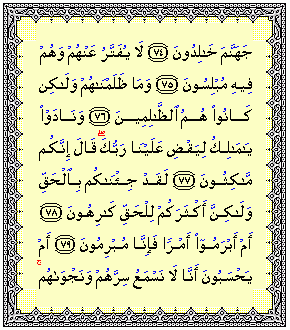 جَهَنَّمَ خَـٰلِدُونَ ﴿٧٤﴾ لَا يُفَتَّرُ عَنْهُمْ وَهُمْ
فِيهِ مُبْلِسُونَ ﴿٧٥﴾ وَمَا ظَلَمْنَـٰهُمْ وَلَـٰكِن
كَانُوا۟ هُمُ ٱلظَّـٰلِمِينَ ﴿٧٦﴾ وَنَادَوْا۟
يَـٰمَـٰلِكُ لِيَقْضِ عَلَيْنَا رَبُّكَ ۖ قَالَ إِنَّكُم
مَّـٰكِثُونَ ﴿٧٧﴾ لَقَدْ جِئْنَـٰكُم بِٱلْحَقِّ
وَلَـٰكِنَّ أَكْثَرَكُمْ لِلْحَقِّ كَـٰرِهُونَ ﴿٧٨﴾
أَمْ أَبْرَمُوٓا۟ أَمْرًا فَإِنَّا مُبْرِمُونَ ﴿٧٩﴾ أَمْ
يَحْسَبُونَ أَنَّا لَا نَسْمَعُ سِرَّهُمْ وَنَجْوَىٰهُم ۚ